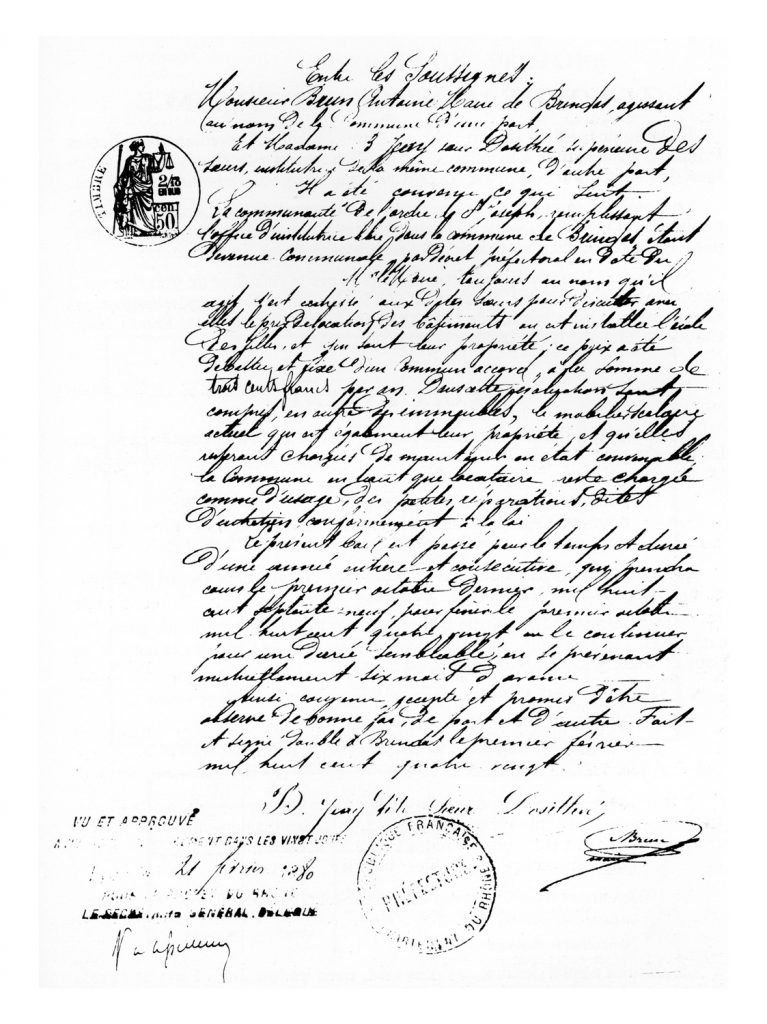 Entre les Soussignés,
Monsieur Brun Antoine Maire de Brindas, agissant
au nom de la Commune d'une part
Et Madame Jury sœur Dosithée supérieure des
sœurs, institutrice de la même commune, d'autre part,
Il a été convenu ce qui suit
La communauté de l'ordre St Joseph, remplissant
l'office d'institutrice libre dans la commune de Brindas, étant
devenue communale par Décret préfectoral en Date du
Mr le Maire, toujours au nom qu'il
agit s'est adressé aux dites sœurs pour discuter avec
elles le prix de location des bâtiments où est installée l'école
des filles, et qui sont leur propriété, ce prix a été
débattu et fixé d'un commun accord, à la somme de
trois cents francs par an. Dans cette sont
compris, en outre des immeubles, le mobilier scolaire
actuel qui est également leur propriété, et qu'elles
seront chargées de maintenir en état convenable
la Commune en tant que locataire reste chargée
comme d'usage, des petites réparations, dites
d'entretien conformément à la loi
Le présent bail est passé pour le temps et durée
d'une année entière et consécutive, qui prendra
cours le premier octobre dernier, mil huit
cent septante-neuf, pour finir le premier octobre
mil huit cent quatre vingt ou le continuer
pour une durée semblable, en se prévenant
mutuellement six mois d'avance
Ainsi convenu, accepté et promis d'être
observé de bonne foi, de part et d'autre. Fait
et signé double à Brindas le premier février
mil huit cent quatre vingt.
Jury dite Sœur Dosithée
Brun
TIMBRE
2/10
EN SUS
50 CEN
VU ET APPROUVÉ
DANS LES VINGT JOURS
21 février 1880
POUR LE PRÉFET DU RHÔNE
LE SECRÉTAIRE GÉNÉRAL,
RÉPUBLIQUE FRANÇAISE
PRÉFECTURE
DÉPARTEMENT DU RHÔNE